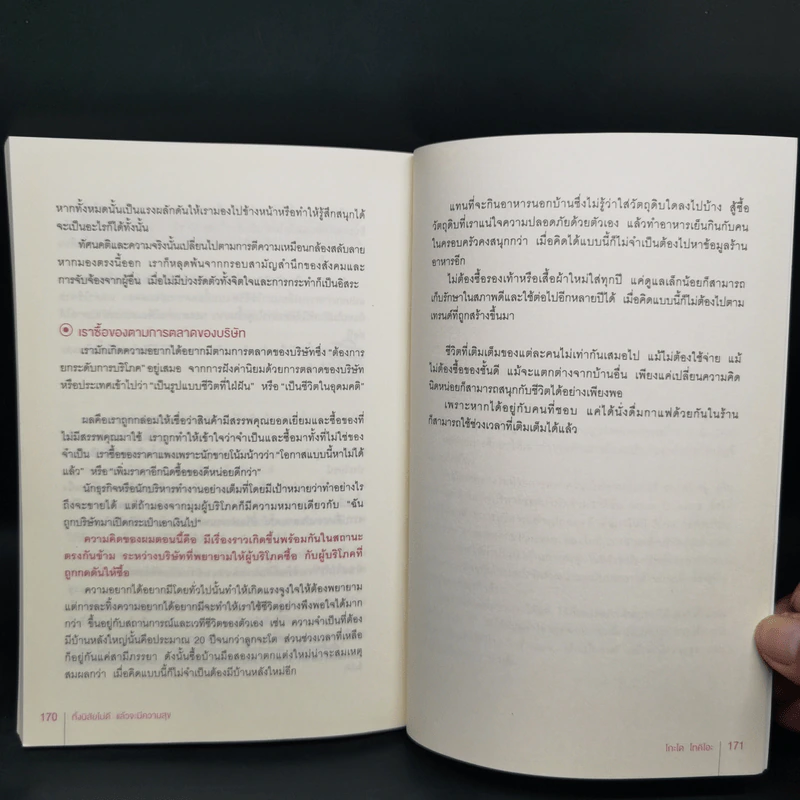 หากทั้งหมดนั้นเป็นแรงผลักดันให้เรามองไปข้างหน้าหรือทำให้รู้สึกสนุกได้
จะเป็นอะไรก็ได้ทั้งนั้น
ทัศนคติและความจริงนั้นเปลี่ยนไปตามการตีความเหมือนกล้องสลับลาย
หากมองตรงนี้ออก เราก็หลุดพ้นจากกรอบสามัญสำนึกของสังคมและ
การจับจ้องจากผู้อื่น เมื่อไม่มีบ่วงรัดตัวทั้งจิตใจและการกระทำก็เป็นอิสระ
เราซื้อของตามการตลาดของบริษัท
เรามักเกิดความอยากได้อยากมีตามการตลาดของบริษัทซึ่ง “ต้องการ
ยกระดับการบริโภค” อยู่เสมอ จากการฝังค่านิยมด้วยการตลาดของบริษัท
หรือประเทศเข้าไปว่า “เป็นรูปแบบชีวิตที่ใฝ่ฝัน” หรือ “เป็นชีวิตในอุดมคติ”
ผลคือเราถูกกล่อมให้เชื่อว่าสินค้ามีสรรพคุณยอดเยี่ยมและซื้อของที่
ไม่มีสรรพคุณมาใช้ เราถูกทำให้เข้าใจว่าจำเป็นและซื้อมาทั้งที่ไม่ใช่ของ
จำเป็น เราซื้อของราคาแพงเพราะนักขายโน้มน้าวว่า “โอกาสแบบนี้หาไม่ได้
แล้ว” หรือ “เพิ่มราคาอีกนิดซื้อของดีหน่อยดีกว่า”
นักธุรกิจหรือนักบริหารทำงานอย่างเต็มที่โดยมีเป้าหมายว่าทำอย่างไร
ถึงจะขายได้ แต่ถ้ามองจากมุมผู้บริโภคก็มีความหมายเดียวกับ “ฉัน
ถูกบริษัทมาเปิดกระเป๋าเอาเงินไป”
ความคิดของผมตอนนี้คือ มีเรื่องราวเกิดขึ้นพร้อมกันในสถานะ
ตรงกันข้าม ระหว่างบริษัทที่พยายามให้ผู้บริโภคซื้อ กับผู้บริโภคที่
ถูกกดดันให้ซื้อ
ความอยากได้อยากมีโดยทั่วไปนั้นทำให้เกิดแรงจูงใจให้ต้องพยายาม
แต่การละทิ้งความอยากได้อยากมีจะทำให้เราใช้ชีวิตอย่างพึงพอใจได้มาก
กว่า ขึ้นอยู่กับสถานการณ์และเวทีชีวิตของตัวเอง เช่น ความจำเป็นที่ต้อง
มีบ้านหลังใหญ่นั้นคือประมาณ 20 ปีจนกว่าลูกจะโต ส่วนช่วงเวลาที่เหลือ
ก็อยู่กันแค่สามีภรรยา ดังนั้นซื้อบ้านมือสองมาตกแต่งใหม่น่าจะสมเหตุ
สมผลกว่า เมื่อคิดแบบนี้ก็ไม่จำเป็นต้องมีบ้านหลังใหม่อีก
170 ทิ้งนิสัยไม่ดี แล้วจะมีความสุข
แทนที่จะกินอาหารนอกบ้านซึ่งไม่รู้ว่าใส่วัตถุดิบใดลงไปบ้าง สู้ซื้อ
วัตถุดิบที่เราแน่ใจความปลอดภัยด้วยตัวเอง แล้วทำอาหารเย็นกินกับคน
ในครอบครัวคงสนุกกว่า เมื่อคิดได้แบบนี้ก็ไม่จำเป็นต้องไปหาข้อมูลร้าน
อาหารอีก
ไม่ต้องซื้อรองเท้าหรือเสื้อผ้าใหม่ใส่ทุกปี แค่ดูแลเล็กน้อยก็สามารถ
เก็บรักษาในสภาพดีและใช้ต่อไปอีกหลายปีได้ เมื่อคิดแบบนี้ก็ไม่ต้องไปตาม
เทรนด์ที่ถูกสร้างขึ้นมา
ชีวิตที่เติมเต็มของแต่ละคนไม่เท่ากันเสมอไป แม้ไม่ต้องใช้จ่าย แม้
ไม่ต้องซื้อของชั้นดี แม้จะแตกต่างจากบ้านอื่น เพียงแค่เปลี่ยนความคิด
นิดหน่อยก็สามารถสนุกกับชีวิตได้อย่างเพียงพอ
เพราะหากได้อยู่กับคนที่ชอบ แค่ได้นั่งดื่มกาแฟด้วยกันในร้าน
ก็สามารถใช้ช่วงเวลาที่เติมเต็มได้แล้ว
โกะโด โทคิโอะ 171